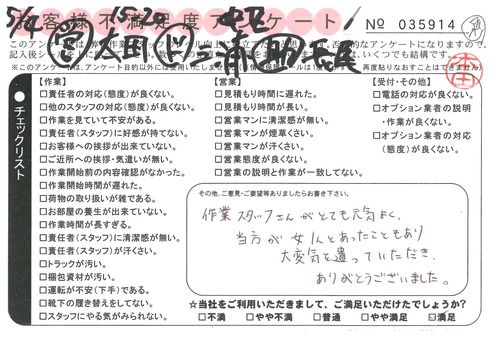 お客様不満足度アンケート!
No 035914
5/4
15-20
この
会社のため、いくつでも結構です。
【作業】
□責任者の対応(態度)が良くない。
□他のスタッフの対応(態度)が良くない。
□作業を見ていて不安がある。
□責任者(スタッフ)に好感が持てない。
□お客様への挨拶が出来ていない。
□ご近所への挨拶・気遣いが無い。
□作業開始前の内容確認がなかった。
□作業開始時間が遅れた。
□荷物の取り扱いが雑である。
□お部屋の養生が出来ていない。
□作業時間が長すぎる。
□責任者(スタッフ)に清潔感が無い。
□責任者(スタッフ)が汗くさい。
□トラックが汚い。
□梱包資材が汚い。
□運転が不安(下手)である。
□靴下の履き替えをしてない。
□スタッフにやる気がみられない。
【営業】
□見積もり時間に遅れた。
□見積もり時間が長い。
□営業マンに清潔感が無い。
□営業マンが煙草くさい。
□営業マンが汗くさい。
□営業態度が良くない。
□営業の説明と作業が一致してない。
【受付・その他】
□電話の対応が良くない。
□オプション業者の説明
・作業が良くない。
□オプション業者の対応
(態度)が良くない。
●チェックリスト
その他、ご意見・ご要望等ありましたらお書き下さい。
作業スタッフさんがとても元気よく、
当方が女1人とあったこともあり
大変気を遣っていただき、
ありがとうございました。
☆当社をご利用いただきまして、ご満足いただけたでしょうか?
□不満 □やや不満 □普通 □やや満足 ☑満足